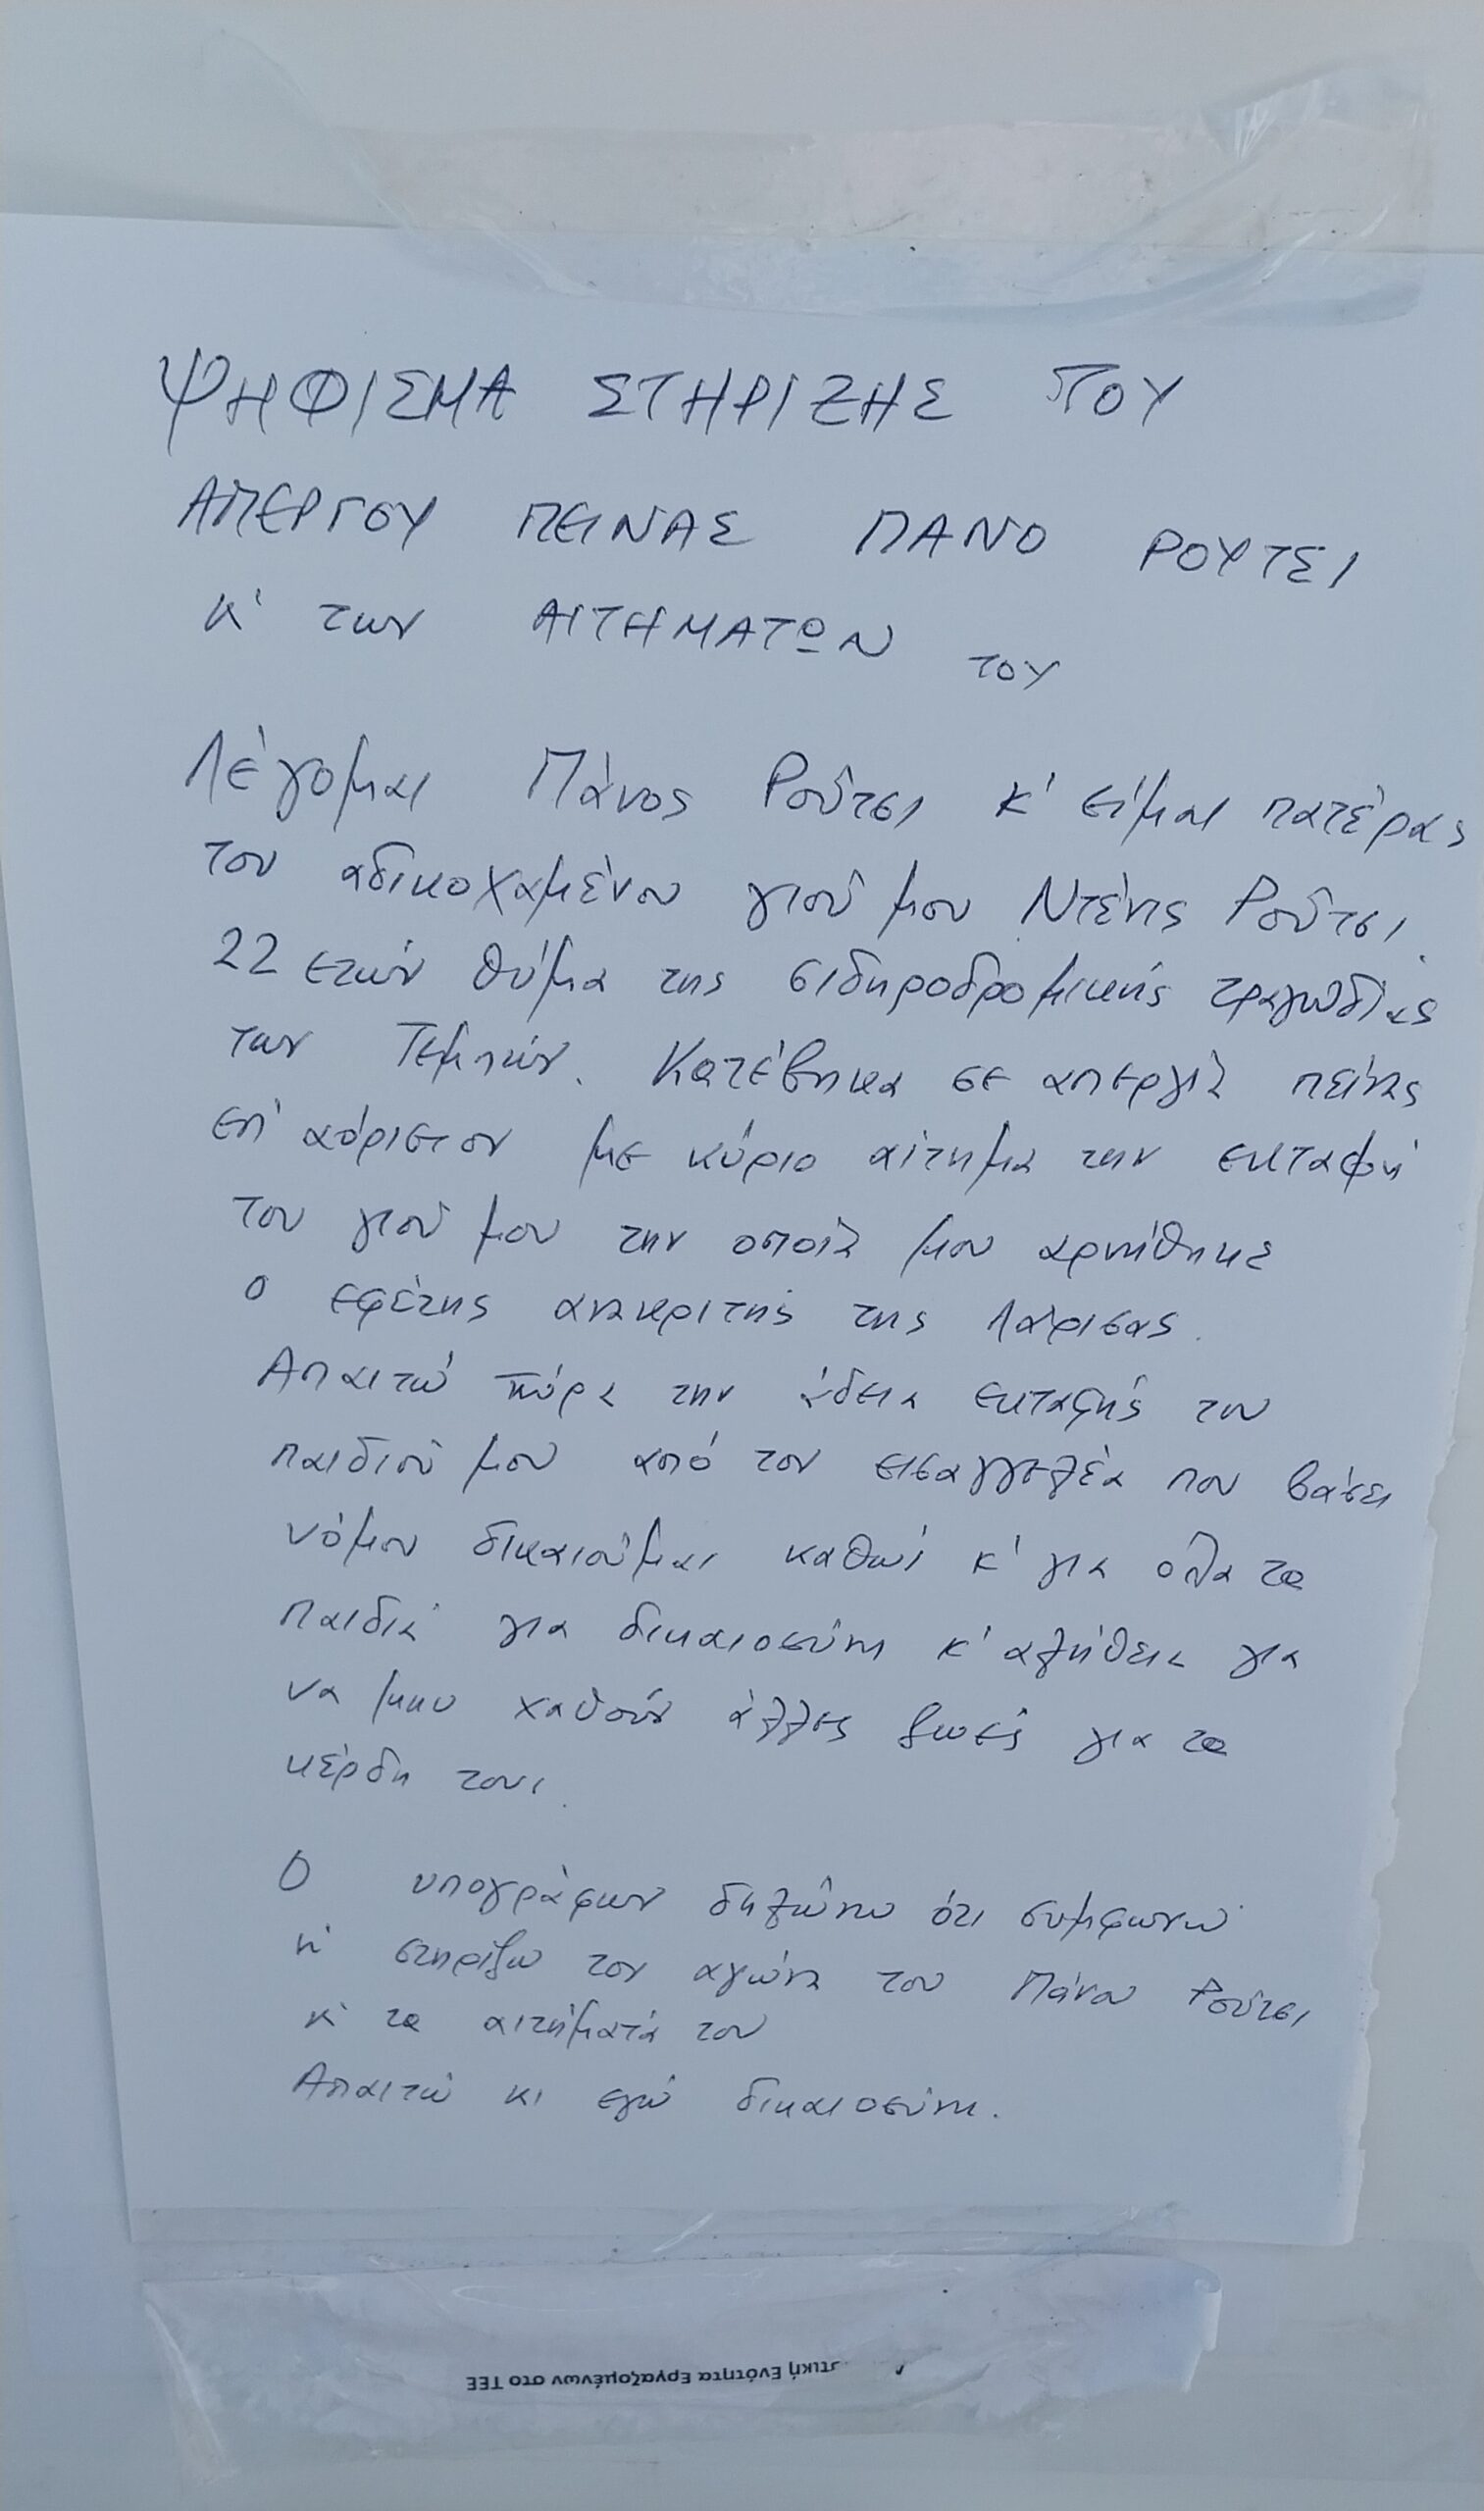 ΨΗΦΙΣΜΑ ΣΤΗΡΙΞΗΣ ΤΟΥ
ΑΠΕΡΓΟΥ ΠΕΙΝΑΣ ΠΑΝΟ ΡΟΥΤΣΙ
κ' των ΑΙΤΗΜΑΤΩΝ ΤΟΥ
Λέγομαι Πάνος Ρούτσι κ' είμαι πατέρας
του αδικοχαμένου γιού μου Ντένις Ρούτσι.
22 ετών θύμα της σιδηροδρομικής τραγωδίας
των Τεμπών. Κατέβηκα σε απεργία πείνας
επ' αόριστον με κύριο αίτημα την εκταφή
του γιού μου την οποία μου αρνήθηκε
ο εφέτης ανακριτής της Λάρισας.
Απαιτώ τώρα την άδεια εκταφής του
παιδιού μου από τον εισαγγελέα που βάσει
νόμου δικαιούμαι καθώς κ' για όλα τα
παιδιά για δικαιοσύνη κ' αλήθεια για
να μην χαθούν άλλες ζωές για τα
κέρδη τους.
Ο υπογράφων δηλώνω ότι συμφωνώ
κ' στηρίζω τον αγώνα του Πάνου Ρούτσι
κ' τα αιτήματά του
Απαιτώ κι εγώ δικαιοσύνη.
Ενότητα Εργαζομένων στο ΤΕΕ